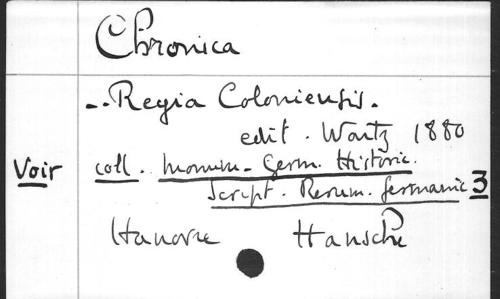 Chronica
-- Regia Coloniensis.
edit. Waitz 1880
Voir coll. Monum. Germ. Historic.
Script. Rerum. Germanic 3
Hanovre Hansche